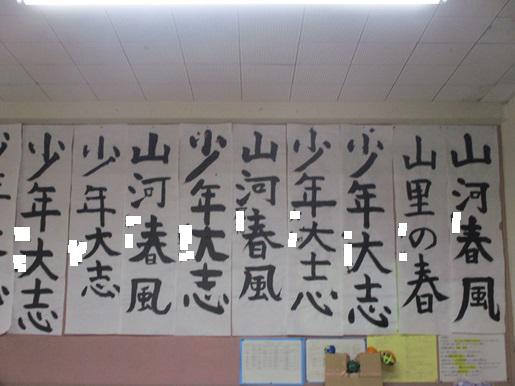 山河春風
山里の春
少年大志
少年大志
山河春風
少年大志
山河春風
少年大志
少年大志